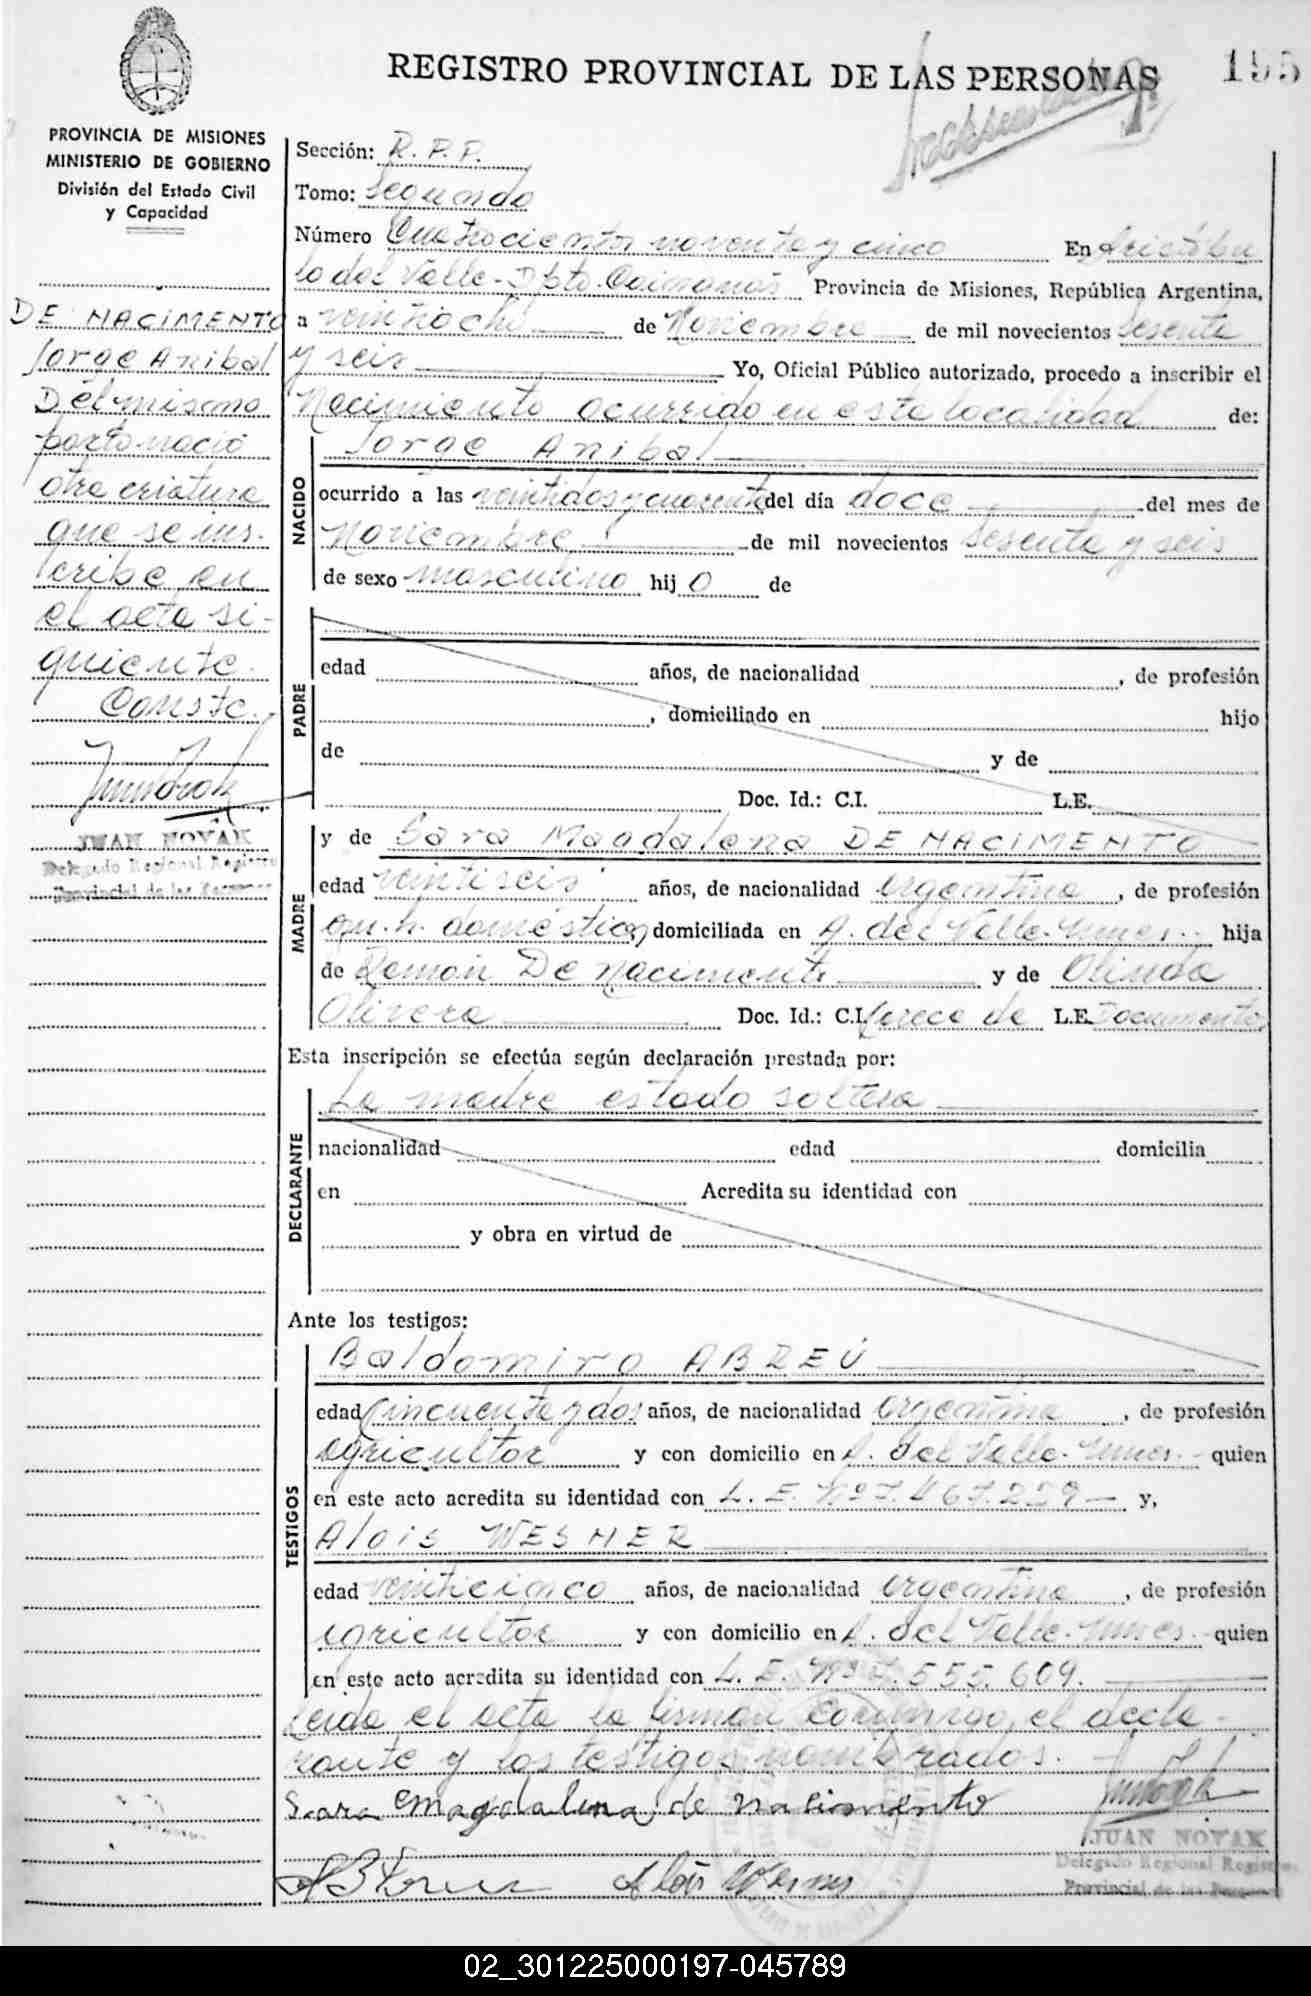 REGISTRO PROVINCIAL DE LAS PERSONAS
195
PROVINCIA DE MISIONES
MINISTERIO DE GOBIERNO
División del Estado Civil
y Capacidad
DE NACIMENTO
Jorge Anibal
Del mismo
parto nació
otra criatura
que se ins-
cribe en
el acta si-
guiente.
Conste.
JUAN NOVAK
Delegado Regional Registro
Provincial de las Personas
Sección: R. P. P.
Tomo: Segundo
Número Cuatrocientos noventa y cinco En Aristóbu
lo del Valle - Dpto. Cainguás Provincia de Misiones, República Argentina,
a veintiocho de Noviembre de mil novecientos sesenta
y seis Yo, Oficial Público autorizado, procedo a inscribir el
Nacimiento ocurrido en esta localidad de:
NACIDO
Jorge Anibal
ocurrido a las veintidos y cuarenta del día doce del mes de
Noviembre de mil novecientos sesenta y seis
de sexo masculino hij o de
PADRE
edad años, de nacionalidad , de profesión
, domiciliado en hijo
de y de
Doc. Id.: C.I. L.E.
MADRE
y de Sara Magdalena DE NACIMENTO
edad veintiseis años, de nacionalidad argentina , de profesión
qu. h. domésticos domiciliada en A. del Valle. Mnes. hija
de Ramón De Nacimento y de Olinda
Olivera Doc. Id.: C.I. Carece de L.E. Documentos
Esta inscripción se efectúa según declaración prestada por:
DECLARANTE
La madre estado soltera
nacionalidad edad domicilia
en Acredita su identidad con
y obra en virtud de
Ante los testigos:
TESTIGOS
Baldomiro ABREÚ
edad Cincuenta y dos años, de nacionalidad argentina , de profesión
agricultor y con domicilio en A. del Valle. Mnes. quien
en este acto acredita su identidad con L. E. Nº 7.467.259 y,
Alois WESNER
edad veinticinco años, de nacionalidad argentina , de profesión
agricultor y con domicilio en A. del Valle. Mnes. quien
en este acto acredita su identidad con L. E. Nº 7.555.609.
Leída el acta la firman conmigo, el decla-
rante y los testigos nombrados.
Sara Magdalena de nacimento
JUAN NOVAK
Delegado Regional Registro
Provincial de las Personas
Alois Wesner
02_301225000197-045789